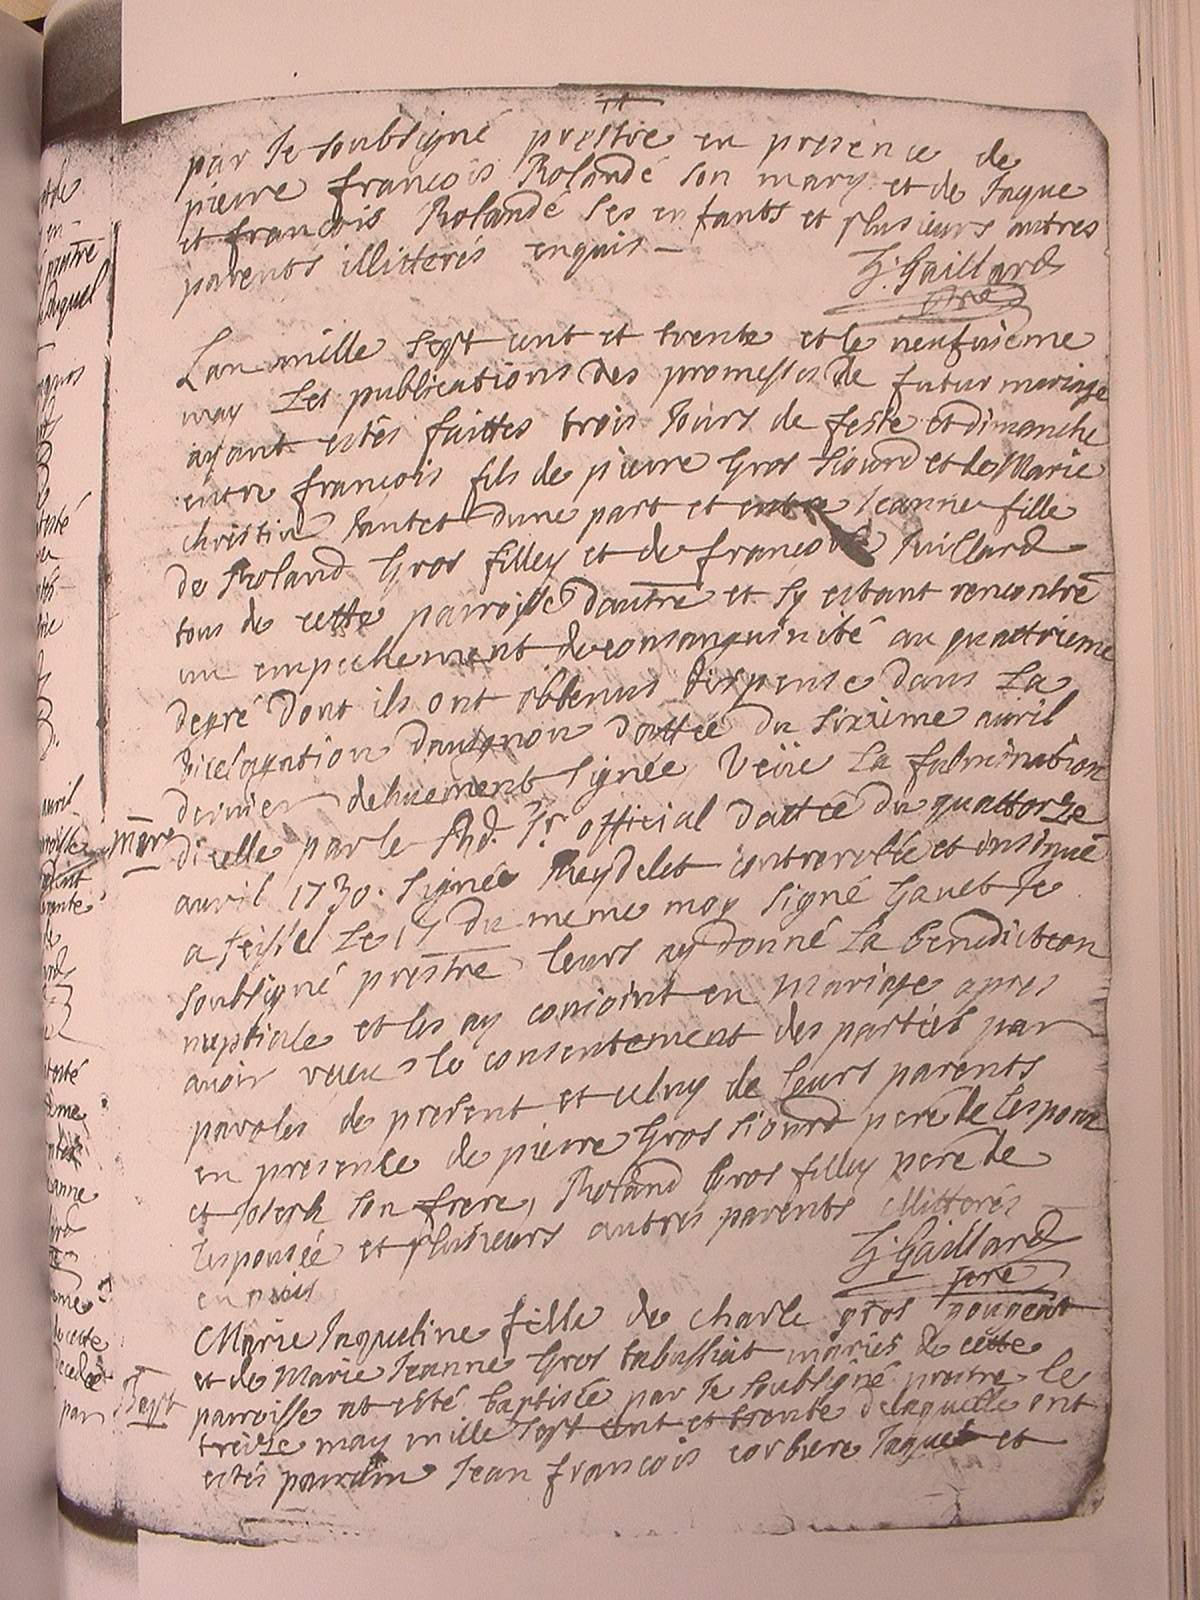 par Je soubsigné prestre en presence de
pierre francois Rolandé son mary et de Jaque
et francois Rolandé ses enfants et plusieurs autres
parents illitterés enquis
G: Gaillard
pre
Lan mille sept cent et trente et le neufvieme
may Les publications des promesses de futur mariage
ayant estés faittes trois Jours de feste et dimanche
entre francois fils de pierre Gros Siourd et de Marie
christin d'une part et entre Jeanne fille
de Roland Gros filley et de francoise Juillard
tous de cette parroisse dautre et sy estant rencontré
un empechement de consanguinité au quattrieme
degré dont ils ont obtenus dispense dans La
Vicelegation davignon dattée du sixième avril
dernier dehuement signée, Veüe La fulmination
dicelle par le Rd. Sr. official dattée du quattorze
avril 1730. signée Reydelet controrollée et insinué
a seissel Le 17 du meme moy signé Gavet Je
mare
soubsigné prestre leurs ay donné La benediction
nuptiale et les ay conioint en mariage apres
avoir veceu le consentement des parties par
paroles de present et celuy de leurs parents
en presence de pierre Gros Siourd pere de Lespoux
et Joseph son frere, Roland Gros filley pere de
Lespousée et plusieurs autres parents illitterés
enquis
G: Gaillard
pre
Marie Jaqueline fille de charle gros
et de Marie Jeanne Gros tabussiat mariés de cette
parroisse at esté baptisée par Je soubsigné prestre le
Bapt
treize may mille sept cent et trente delaquelle ont
estés parrain Jean francois corbiere Jaquet et